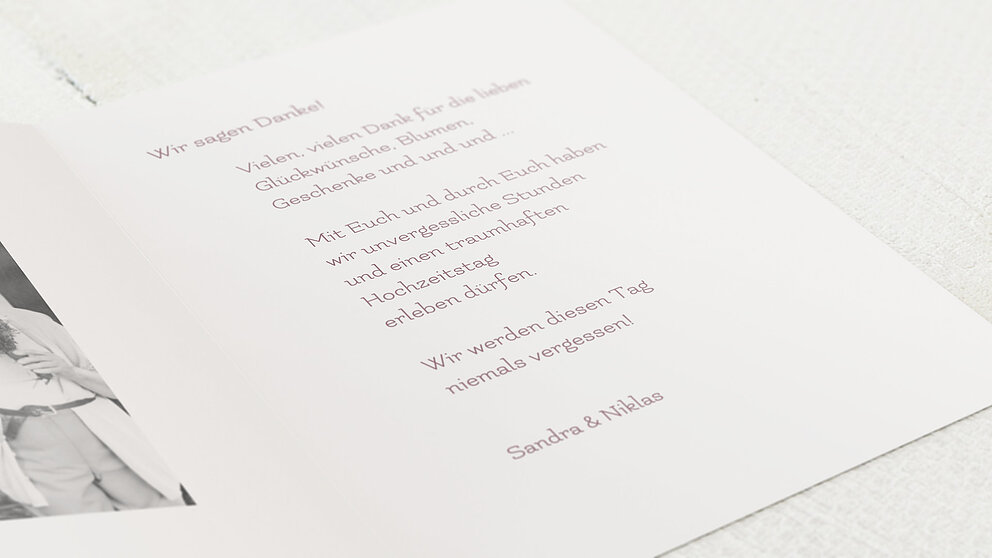 Wir sagen Danke!
Vielen, vielen Dank für die lieben
Glückwünsche, Blumen,
Geschenke und und und ...
Mit Euch und durch Euch haben
wir unvergessliche Stunden
und einen traumhaften
Hochzeitstag
erleben dürfen.
Wir werden diesen Tag
niemals vergessen!
Sandra & Niklas